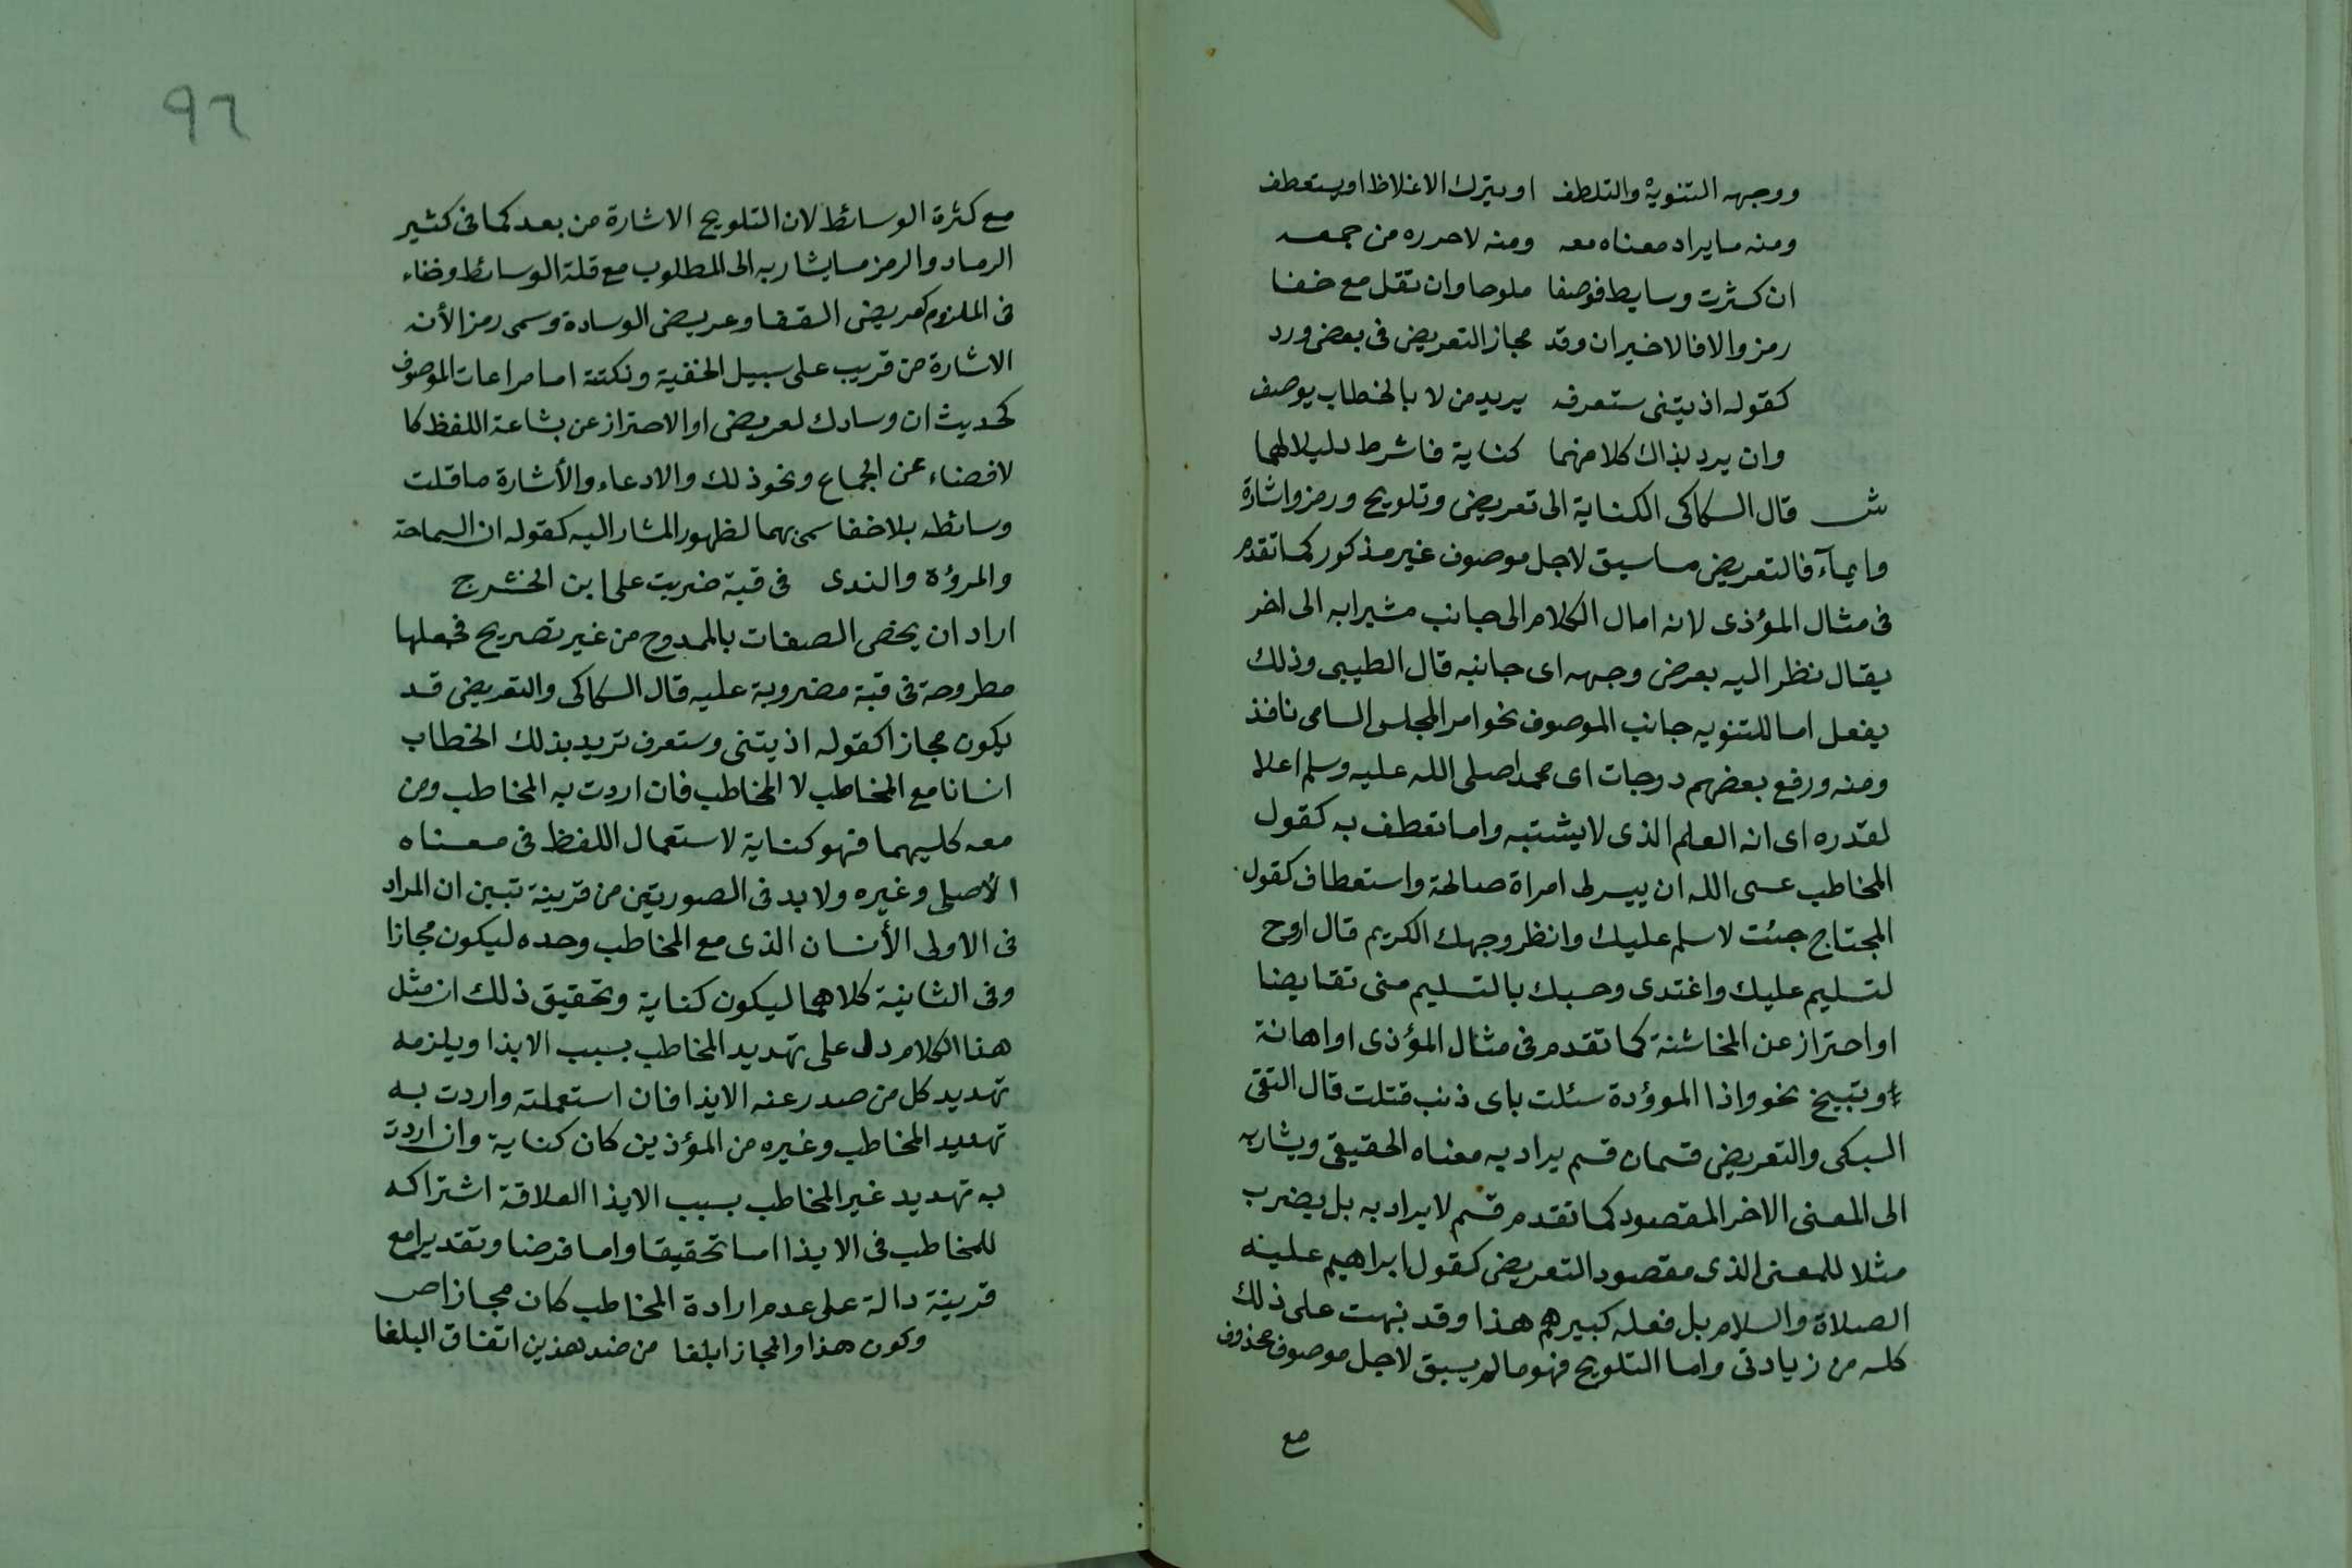 ووجهه التنويه والتلطف اويترك الاغلاظ اويستعطف
ومنه مايراد معناه معه ومنه لا حرره من جمعه
ان كثرت وسايط فوصفا ملوحا وان تقل مع خفا
رمز والا فالاخيران وقد مجاز التعريض فى بعض ورد
كقوله اذيتنى ستعرف يريد من لا بالخطاب يوصف
وان يرد بذاك كلا منهما كناية فاشرط دليلا لهما
ش قال السكاكى الكناية الى تعريض وتلويح ورمز واشارة
وايمآء فالتعريض ماسيق لاجل موصوف غير مذكور كما تقدم
فى مثال المؤذى لانه امال الكلام الى جانب مشيرا به الى اخر
يقال نظر اليه بعرض وجهه اى جانبه قال الطيبى وذلك
يفعل اما للتنويه جانب الموصوف نحو امر المجلس السامى نافذ
ومنه ورفع بعضهم درجات اى محمدا صلى الله عليه وسلم اعلا
لقدره اى انه العلم الذى لا يشتبه واما تعطف به كقول
المخاطب عسى الله ان ييسر لى امراة صالحة واستعطاف كقول
المحتاج جئت لاسلم عليك وانظر وجهك الكريم قال اروح
لتسليم عليك واغتدى وحسبك بالتسليم منى تقايضا
او احتراز عن المخاشنة كما تقدم فى مثال المؤذى او اهانة
وتبيخ نحو واذا الموؤدة سئلت باى ذنب قتلت قال التقى
السبكى والتعريض قسمان قسم يراد به معناه الحقيقى ويشار به
الى المعنى الاخر المقصود كما تقدم قسم لا يراد به بل يضرب
مثلا للمعنى الذى مقصود التعريض كقول ابراهيم علينه
الصلاة والسلام بل فعله كبيرهم هذا وقد نبهت على ذلك
كله من زيادتى واما التلويح فهو مالم يسبق لاجل موصوف محذوف
مع
٩٦
مع كثرة الوسائط لان التلويح الاشارة من بعد كما فى كثير
الرماد والرمز مايشار به الى المطلوب مع قلة الوسائط وخفاء
فى الملزوم كعريض القفا وعريض الوسادة وسمى رمزا لأنه
الاشارة من قريب على سبيل الخفية ونكتته اما مراعات الموصوف
كحديث ان وسادك لعريض او الاحتراز عن بشاعة اللفظ كا
لافضاء عن الجماع ونحو ذلك والادعاء والأشارة ما قلت
وسائطه بلا خفا سمى بهما لظهور المشار اليه كقوله ان السماحة
والمرؤة والندى فى قبة ضربت على ابن الخشرج
اراد ان يخص الصفات بالممدوح من غير تصريح فجعلها
مطروحة فى قبة مضروبة عليه قال السكاكى والتعريض قد
يكون مجازا كقوله اذيتنى وستعرف تريد بذلك الخطاب
انسانا مع المخاطب لا المخاطب فان اردت به المخاطب ومن
معه كليهما فهو كناية لاستعمال اللفظ فى معناه
الأصلى وغيره ولا بد فى الصورتين من قرينة تبين ان المراد
فى الاولى الأنسان الذى مع المخاطب وحده ليكون مجازا
وفى الثانية كلاهما ليكون كناية وتحقيق ذلك ان مثل
هذا الكلام دل على تهديد المخاطب بسبب الايذا ويلزمه
تهديد كل من صدر عنه الايذا فان استعملته واردت به
تهديد المخاطب وغيره من المؤذين كان كناية وان اردت
به تهديد غير المخاطب بسبب الايذا العلاقة اشتراكه
للمخاطب فى الايذا اما تحقيقا واما فرضا وتقديرا مع
قرينة دالة على عدم ارادة المخاطب كان مجازا ص
وكون هذا والمجاز ابلغا من ضد هذين اتفاق البلغا